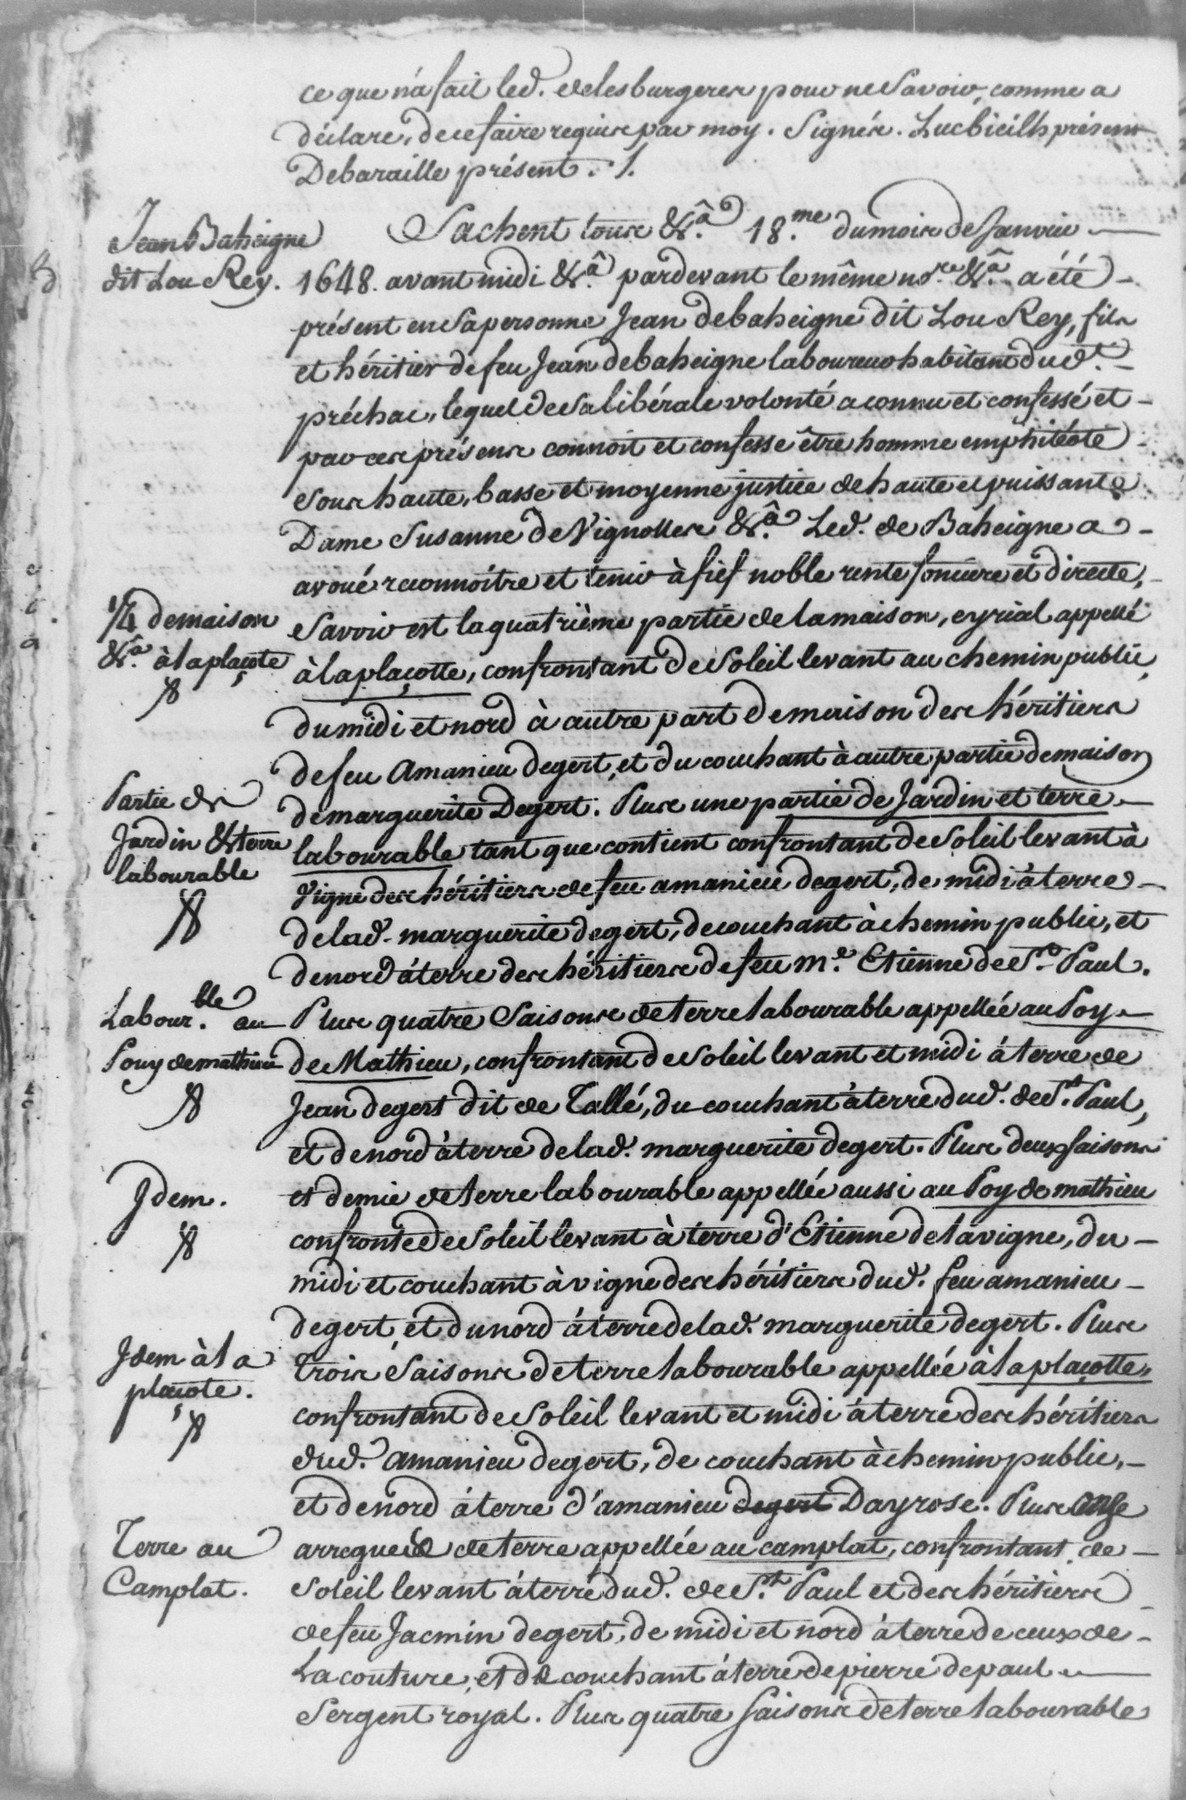 ce que n'a fait led. de lesburgeres pour ne savoir, comme a
déclaré, de ce faire requis par moy. Signés. Lucbieilh présent
Debaraille présent. /.
Jean Baheigne
dit Lou Rey.
Sachent tous &.ª 18.me du mois de Janvier
1648. avant midi &.ª pardevant le même no.re &.ª a été
présent en sa personne Jean debaheigne dit Lou Rey, fils
et héritier de feu Jean debaheigne laboureur habitant dud.t
préchac, lequel de sa libérale volonté a connu et confessé et
par ces présens connoit et confesse être homme emphitéote
sous haute, basse et moyenne justice de haute et puissante
Dame Susanne de Vignolles &.ª Led. de Baheigne a
avoué reconnoitre et tenir à fief noble rente foncière et directe,
1/4 de maison
&.ª à la plaçote
savoir est la quatrième partie de la maison, eyrial, appellé
à la plaçotte, confrontant de soleil levant au chemin public,
du midi et nord à autre part de maison des héritiers
de feu Amanieu degert, et du couchant à autre partie de maison
Partie de
Jardin & terre
labourable
de marguerite Degert. Plus une partie de Jardin et terre
labourable tant que contient confrontant de soleil levant à
vigne des héritiers de feu amanieu degert, de midi à terre
de lad. marguerite degert, de couchant à chemin public, et
de nord à terre des héritiers de feu m.e Etienne de S.t Paul.
Labour.ble au
Pouy de mathieu
Plus quatre saisons de terre labourable appellée au Poy
de Mathieu, confrontant de soleil levant et midi à terre de
Jean degert dit de Tallé, du couchant à terre dud. de S.t Paul,
et de nord à terre de lad. marguerite degert. Plus deux saisons
Idem.
et demie de terre labourable appellée aussi au Poy de mathieu
confronte de soleil levant à terre d'Etienne de lavigne, du
midi et couchant à vigne des héritiers dud. feu amanieu
degert, et du nord à terre de lad. marguerite degert. Plus
Idem à la
plaçote.
trois saisons de terre labourable appellée à la plaçotte,
confrontant de soleil levant et midi à terre des héritiers
dud. amanieu degert, de couchant à chemin public,
et de nord à terre d'amanieu degert Dayrose. Plus onze
Terre au
Camplat.
arregues de terre appellée au camplat, confrontant de
soleil levant à terre dud. de S.t Paul et des héritiers
de feu Jacmin degert, de midi et nord à terre de ceux de
La couture, et de couchant à terre de pierre depaul
sergent royal. Plus quatre saisons de terre labourable